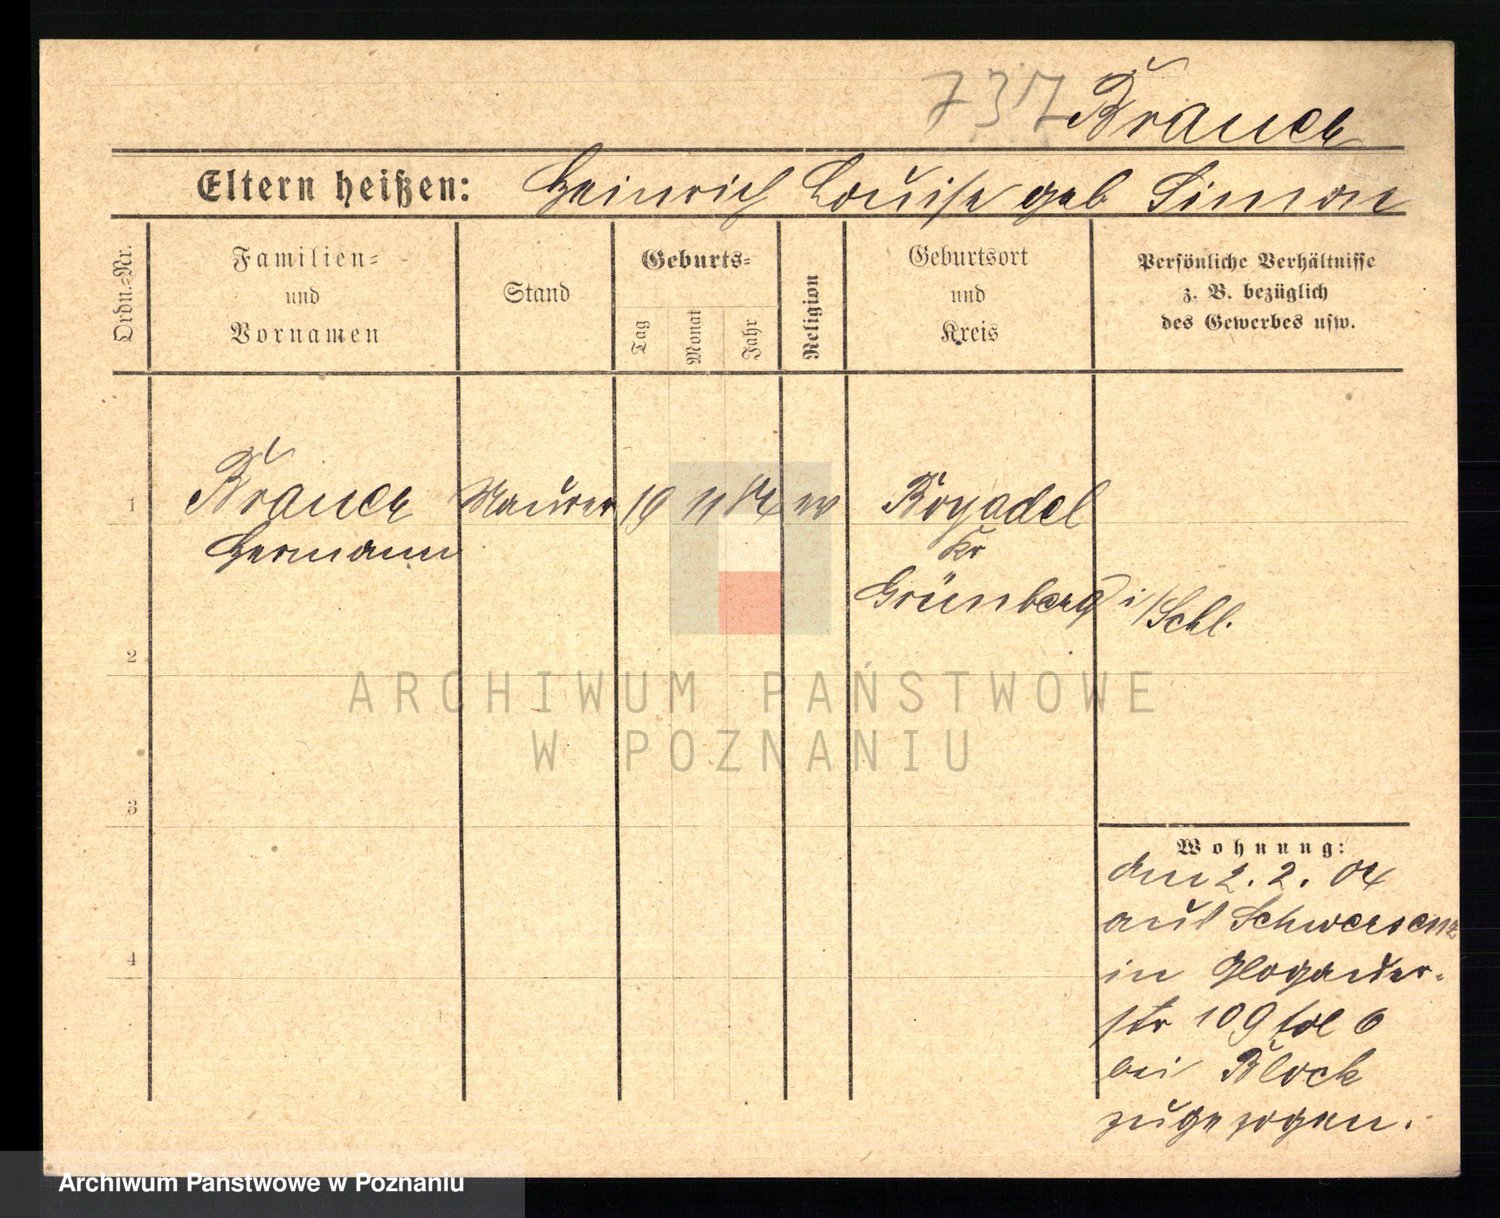 737 Brauer
Eltern heißen: Heinrich Louise geb Simon
Ordn.-Nr.
Familien-
und
Vornamen
Stand
Geburts-
Tag
Monat
Jahr
Religion
Geburtsort
und
Kreis
Persönliche Verhältnisse
z. B. bezüglich
des Gewerbes usw.
1 Brauer Maurer 19 11 84 ev Boyadel
Hermann Kr
Grünberg i/Schl.
2
ARCHIWUM PAŃSTWOWE
W POZNANIU
3
Wohnung:
den 2. 2. 04
aus Schwersenz
in Glogauer-
str 109 fol 6
bei Block
4
zugezogen.
Archiwum Państwowe w Poznaniu